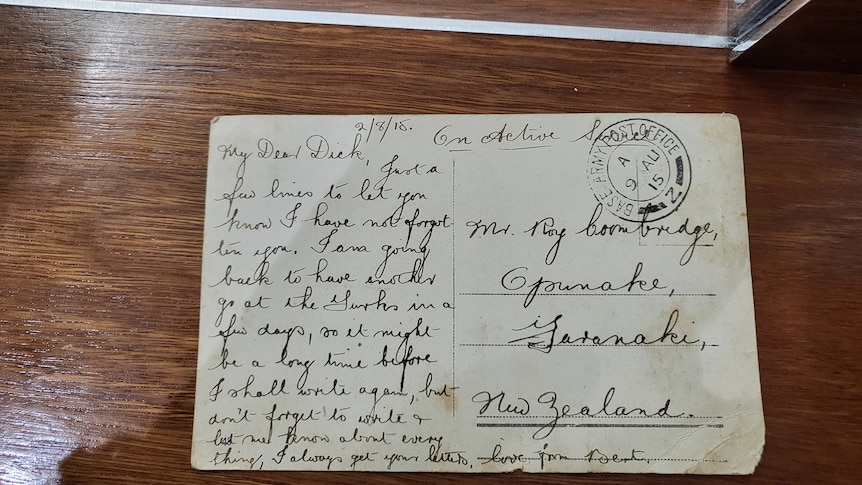 2/8/15.
On Active Service
BASE ARMY POST OFFICE
A
9 AU
15
Z
My Dear Dick,
Just a
few lines to let you
know I have not forgot
ten you. I am going
back to have another
go at the Turks in a
few days, so it might
be a long time before
I shall write again, but
don't forget to write &
let me know about every
thing, I always get your letters, love from Bert.
Mr. Roy Coombridge,
Opunake,
Taranaki,
New Zealand.